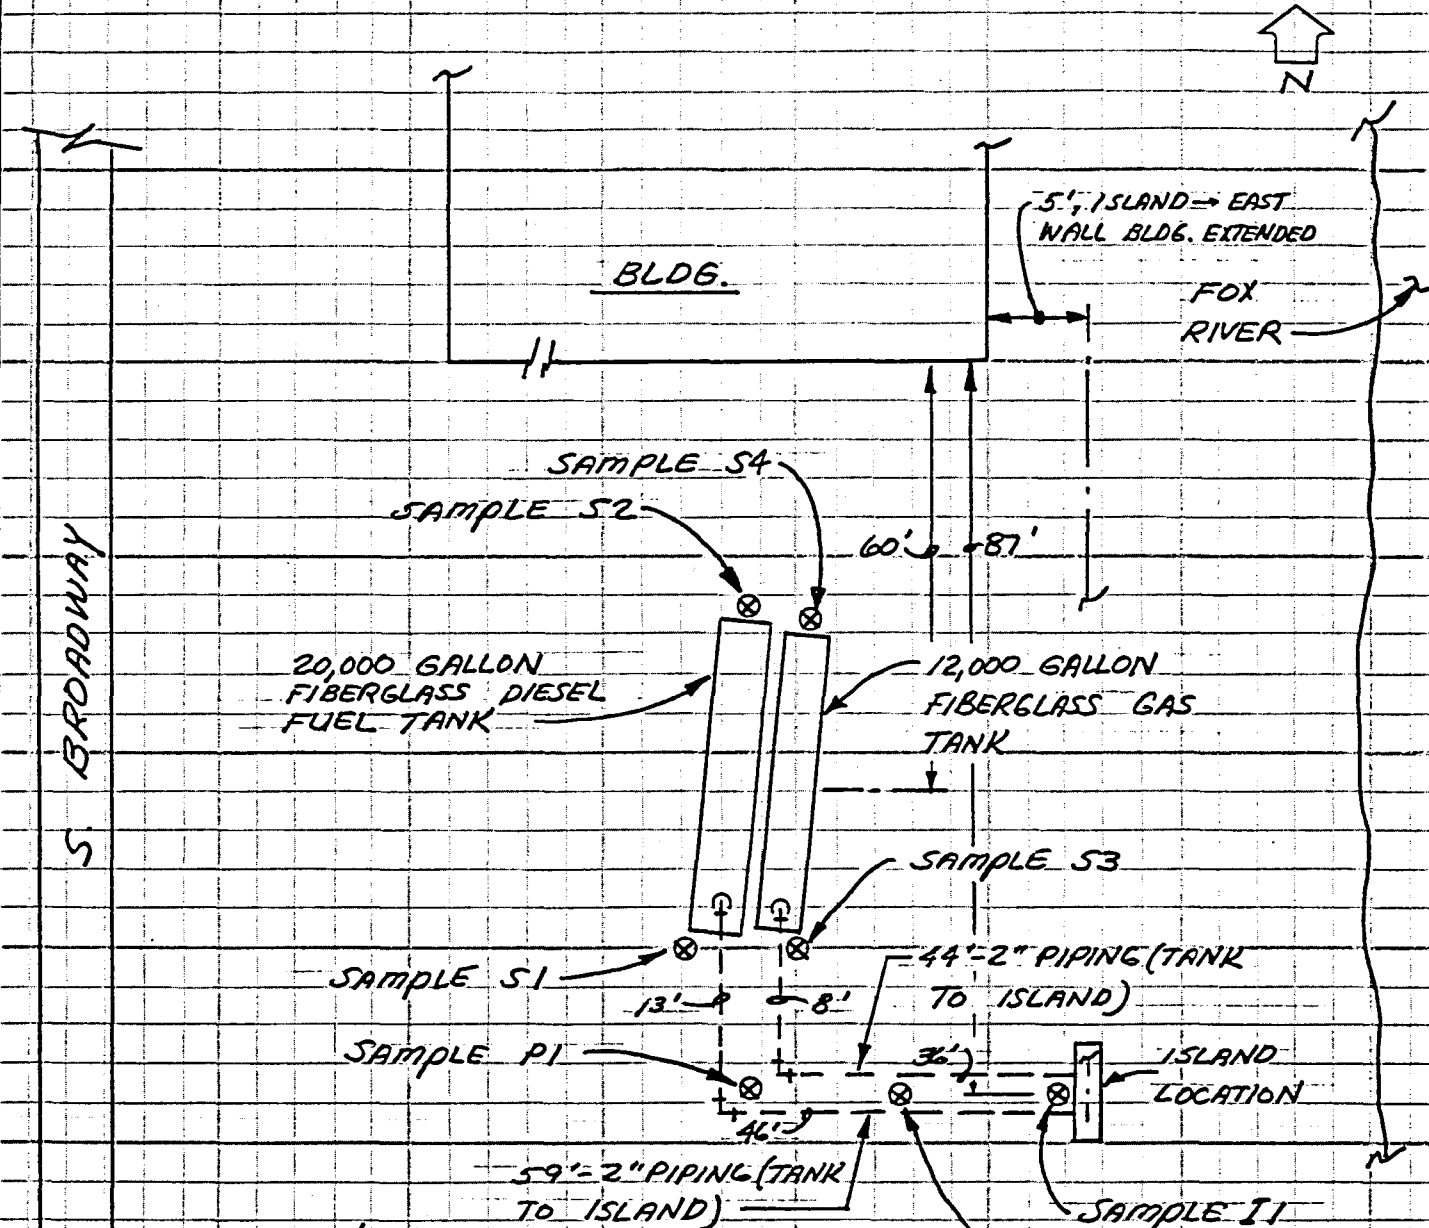 N
5', ISLAND → EAST
WALL BLDG. EXTENDED
BLDG.
FOX
RIVER
SAMPLE S4
SAMPLE S2
60'
87'
S. BROADWAY
20,000 GALLON
FIBERGLASS DIESEL
FUEL TANK
12,000 GALLON
FIBERGLASS GAS
TANK
SAMPLE S3
SAMPLE S1
44'-2" PIPING (TANK
TO ISLAND)
13'
8'
SAMPLE P1
36'
ISLAND
LOCATION
46'
59'-2" PIPING (TANK
TO ISLAND)
SAMPLE I1